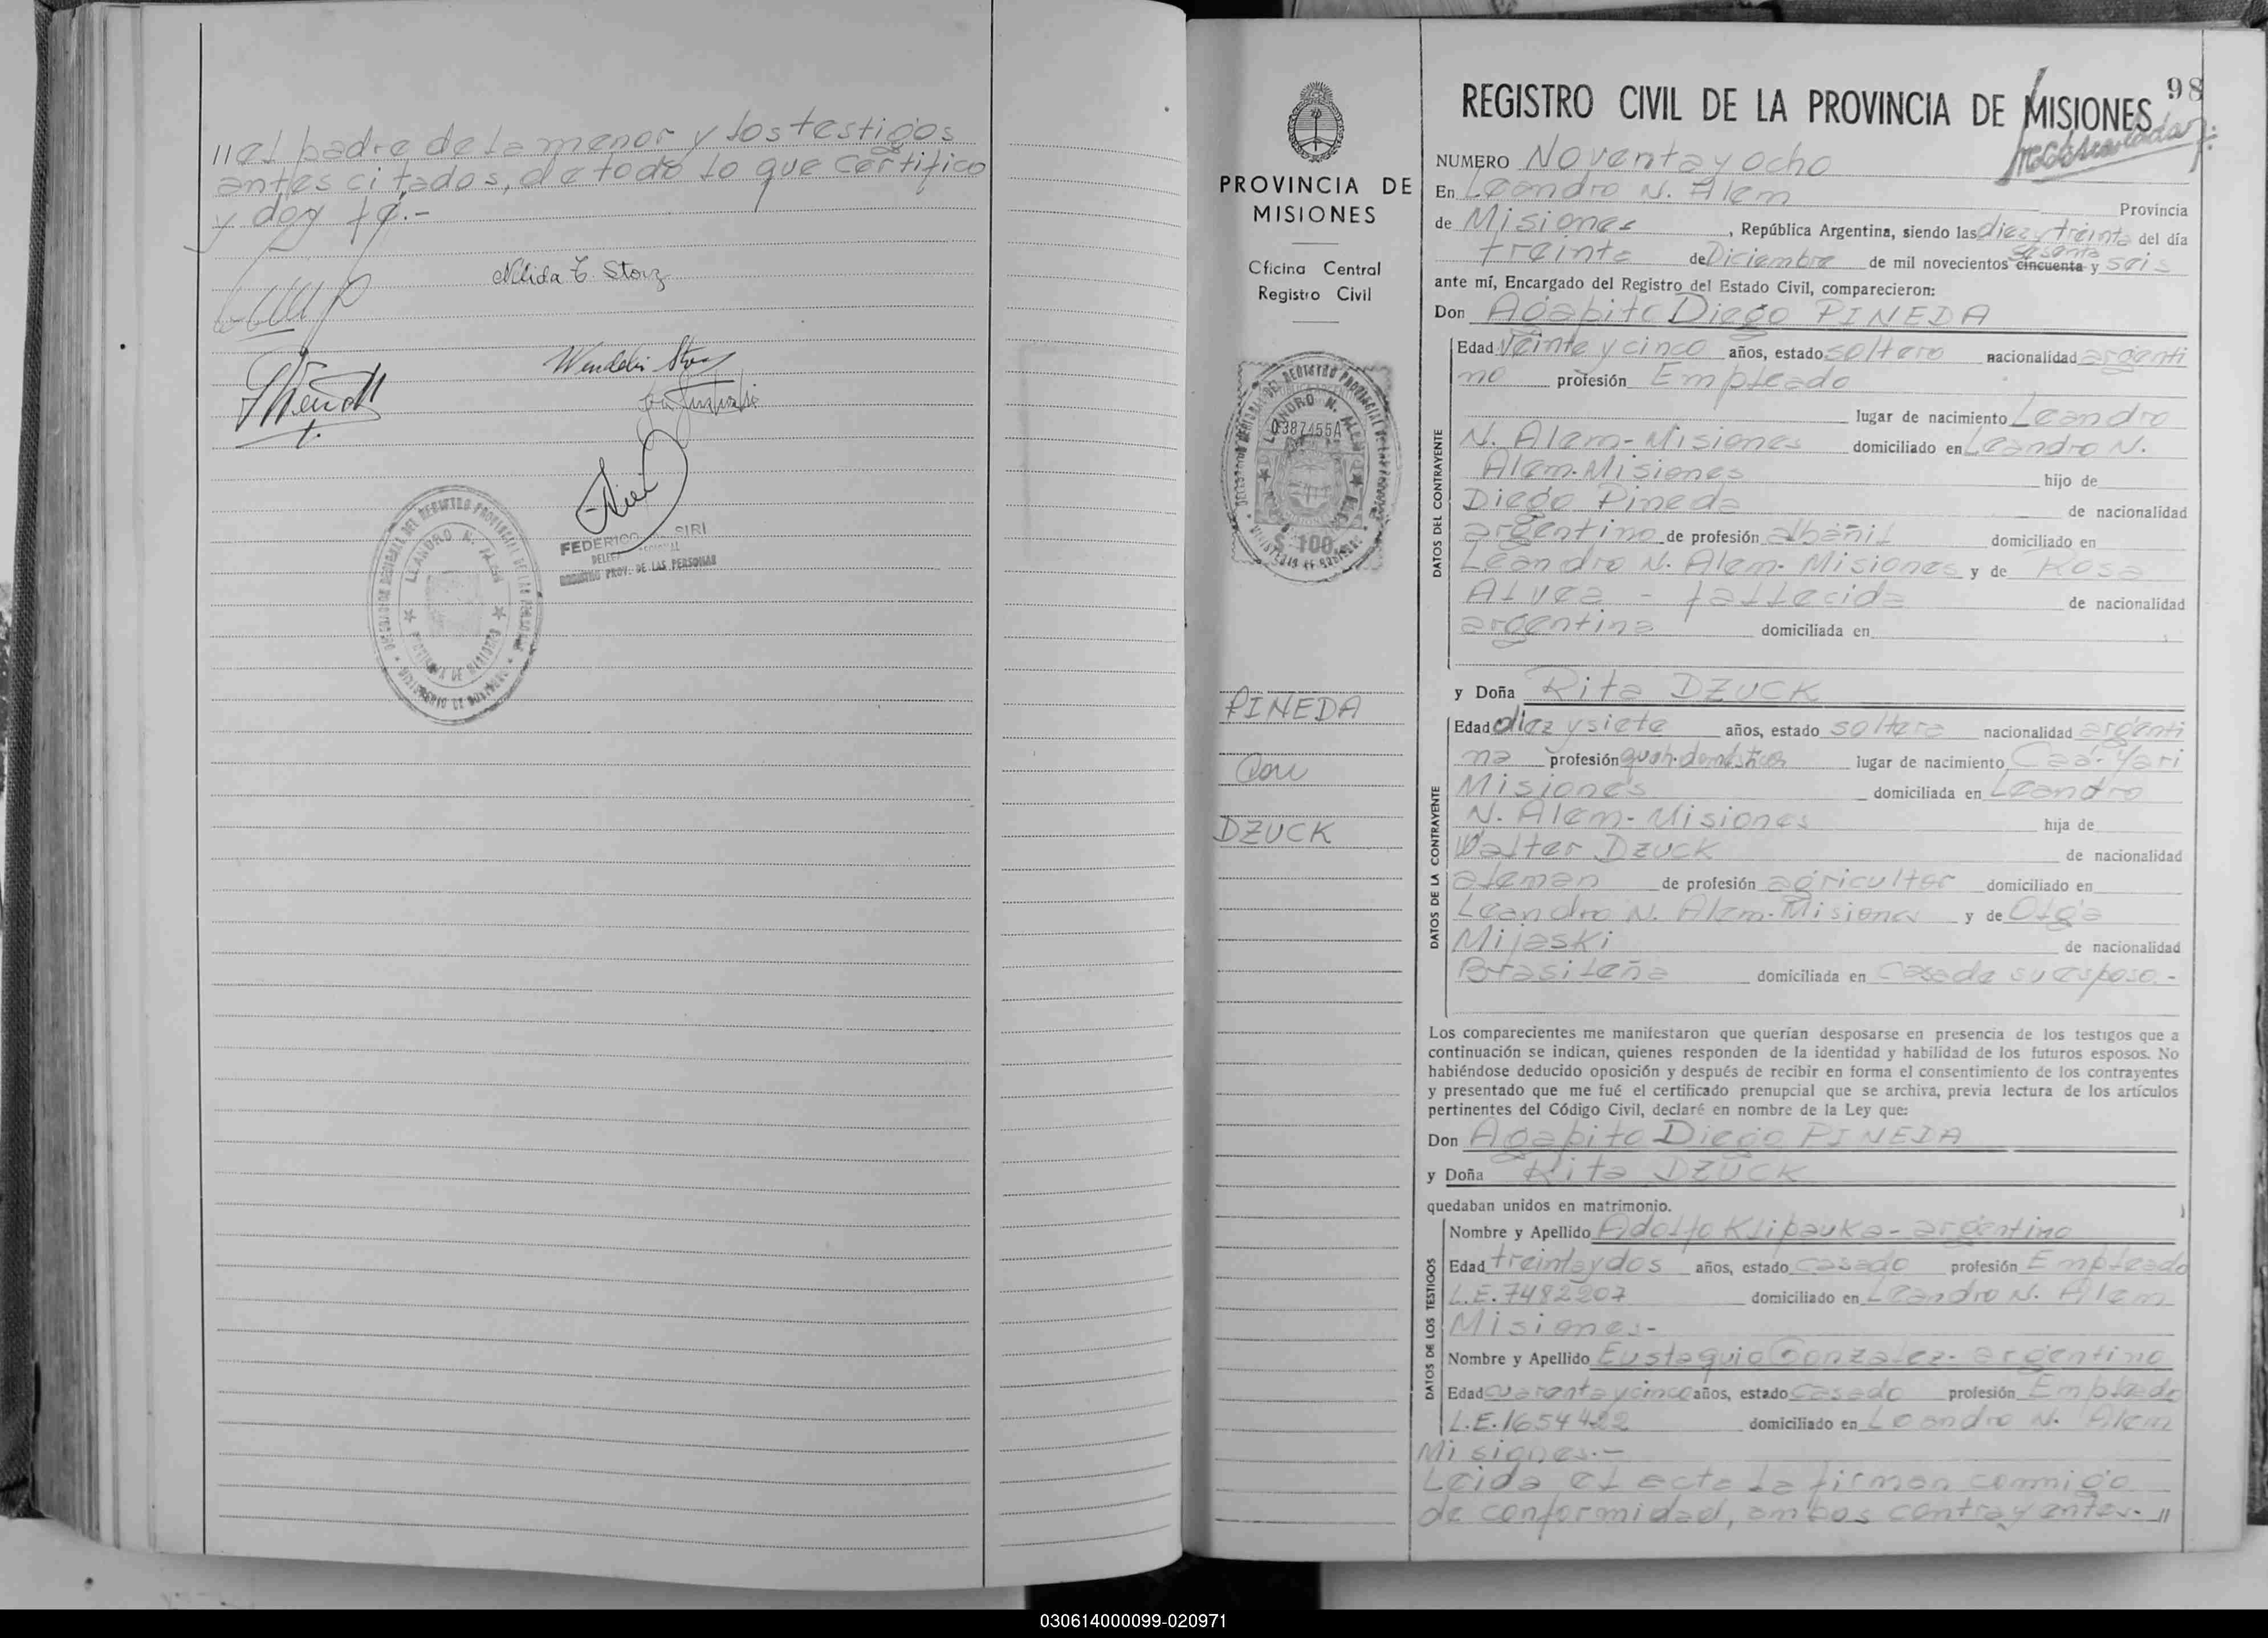 "el padre de la menor y los testigos
antes citados, de todo lo que certifico
y doy fé.-
Nélida E. Storz
Wendelin Storz
FEDERICO SIRI
REGISTRO PROV. DE LAS PERSONAS
LEANDRO N. ALEM
PROVINCIA DE
MISIONES
Oficina Central
Registro Civil
LEANDRO N. ALEM
0387455A
$ 100
PINEDA
Con
DZUCK
98
REGISTRO CIVIL DE LA PROVINCIA DE MISIONES
NUMERO Noventa y ocho
En Leandro N. Alem Provincia
de Misiones, República Argentina, siendo las diez y treinta del día
treinta de Diciembre de mil novecientos cincuenta sesenta y seis
ante mí, Encargado del Registro del Estado Civil, comparecieron:
Don Agapito Diego PINEDA
Edad Veinte y cinco años, estado soltero nacionalidad argenti
no profesión Empleado
lugar de nacimiento Leandro
N. Alem-Misiones domiciliado en Leandro N.
Alem-Misiones hijo de
Diego Pineda de nacionalidad
argentino de profesión albañil domiciliado en
Leandro N. Alem-Misiones y de Rosa
Alvea - fallecida de nacionalidad
argentina domiciliada en
DATOS DEL CONTRAYENTE
y Doña Rita DZUCK
Edad diez y siete años, estado soltera nacionalidad argenti
na profesión lugar de nacimiento Caá-Yari
Misiones domiciliada en Leandro
N. Alem-Misiones hija de
Walter DZUCK de nacionalidad
aleman de profesión agricultor domiciliado en
Leandro N. Alem-Misiones y de Olga
Mijaski de nacionalidad
Brasileña domiciliada en casa de su esposo.-
DATOS DE LA CONTRAYENTE
Los comparecientes me manifestaron que querían desposarse en presencia de los testigos que a
continuación se indican, quienes responden de la identidad y habilidad de los futuros esposos. No
habiéndose deducido oposición y después de recibir en forma el consentimiento de los contrayentes
y presentado que me fué el certificado prenupcial que se archiva, previa lectura de los artículos
pertinentes del Código Civil, declaré en nombre de la Ley que:
Don Agapito Diego PINEDA
y Doña Rita DZUCK
quedaban unidos en matrimonio.
Nombre y Apellido Adolfo Klipauka- argentino
Edad treinta y dos años, estado casado profesión Empleado
L.E.7482207 domiciliado en Leandro N. Alem
Misiones-
Nombre y Apellido Eustaquio Gonzalez- argentino
Edad cuarenta y cinco años, estado casado profesión Empleado
L.E.1654422 domiciliado en Leandro N. Alem
DATOS DE LOS TESTIGOS
Misiones.-
Leida el acta la firman conmigo
de conformidad, ambos contrayentes- "
030614000099-020971